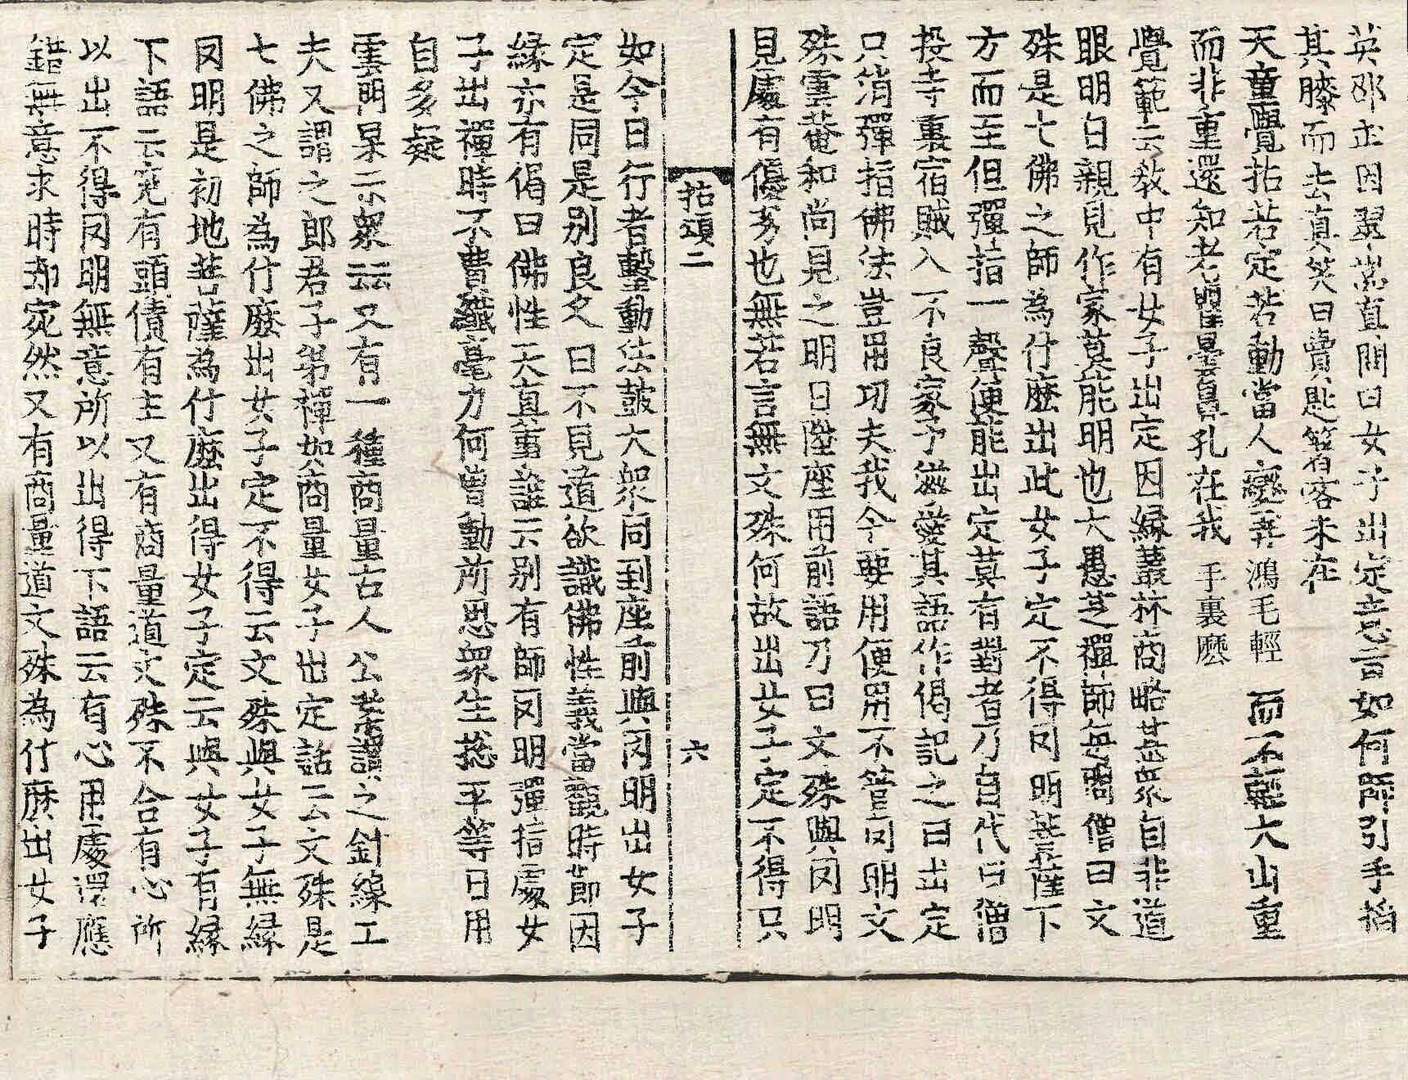 英邵武因翠嵓真問曰女子出定意旨如何師引手搯
其膝而去真笑曰賣匙箸客未在
天童覺拈若定若動當人變弄鴻毛輕而不輕大山重
而非重還知老瞿曇鼻孔在我手裏麽
覺範云教中有女子出定因緣叢林商略甚衆自非道
眼明白親見作家莫能明也大愚芝禪師每問僧曰文
殊是七佛之師為什麽出此女子定不得罔明菩薩下
方而至但彈指一聲便能出定莫有對者乃自代曰僧
投寺裏宿賊入不良家予滋愛其語作偈記之曰出定
只消彈指佛法豈用功夫我今要用便用不管罔明文
殊雲菴和尚見之明日陞座用前語乃曰文殊與罔明
見處有優劣也無若言無文殊何故出女子定不得只
拈頌二
六
如今日行者擊動法鼓大衆同到座前與罔明出女子
定是同是别良久曰不見道欲識佛性義當觀時節因
緣亦有偈曰佛性天真事誰云别有師罔明彈指處女
子出禪時不費纖毫力何曾動所思衆生揔平等日用
自多疑
雲門杲示衆云又有一種商量古人公案謂之針線工
夫又謂之郎君子弟禪如商量女子出定話云文殊是
七佛之師為什麽出女子定不得云文殊與女子無緣
罔明是初地菩薩為什麽出得女子定云與女子有緣
下語云寃有頭債有主又有商量道文殊不合有心所
以出不得罔明無意所以出得下語云有心用處還應
錯無意求時却宛然又有商量道文殊為什麽出女子